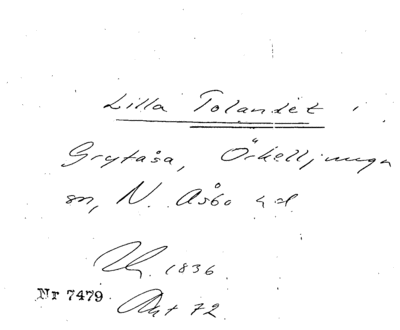 Lilla Tolandet i
Grytåsa, Örkelljunga
sn, N. Åsbo hd
1836
Nr 7479. Akt 72